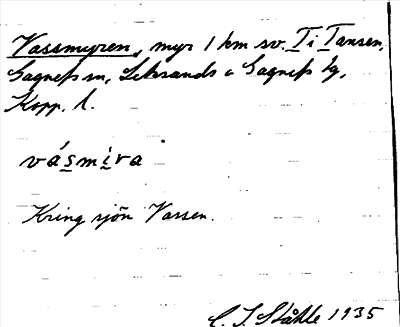 Vassmyren, myr 1 km sv. Ti Tansen,
Gagnefs sn, Leksands o Gagnefs tg,
Kopp. l.
vásmira
Kring sjön Vassen.
C. I. Ståhle 1935